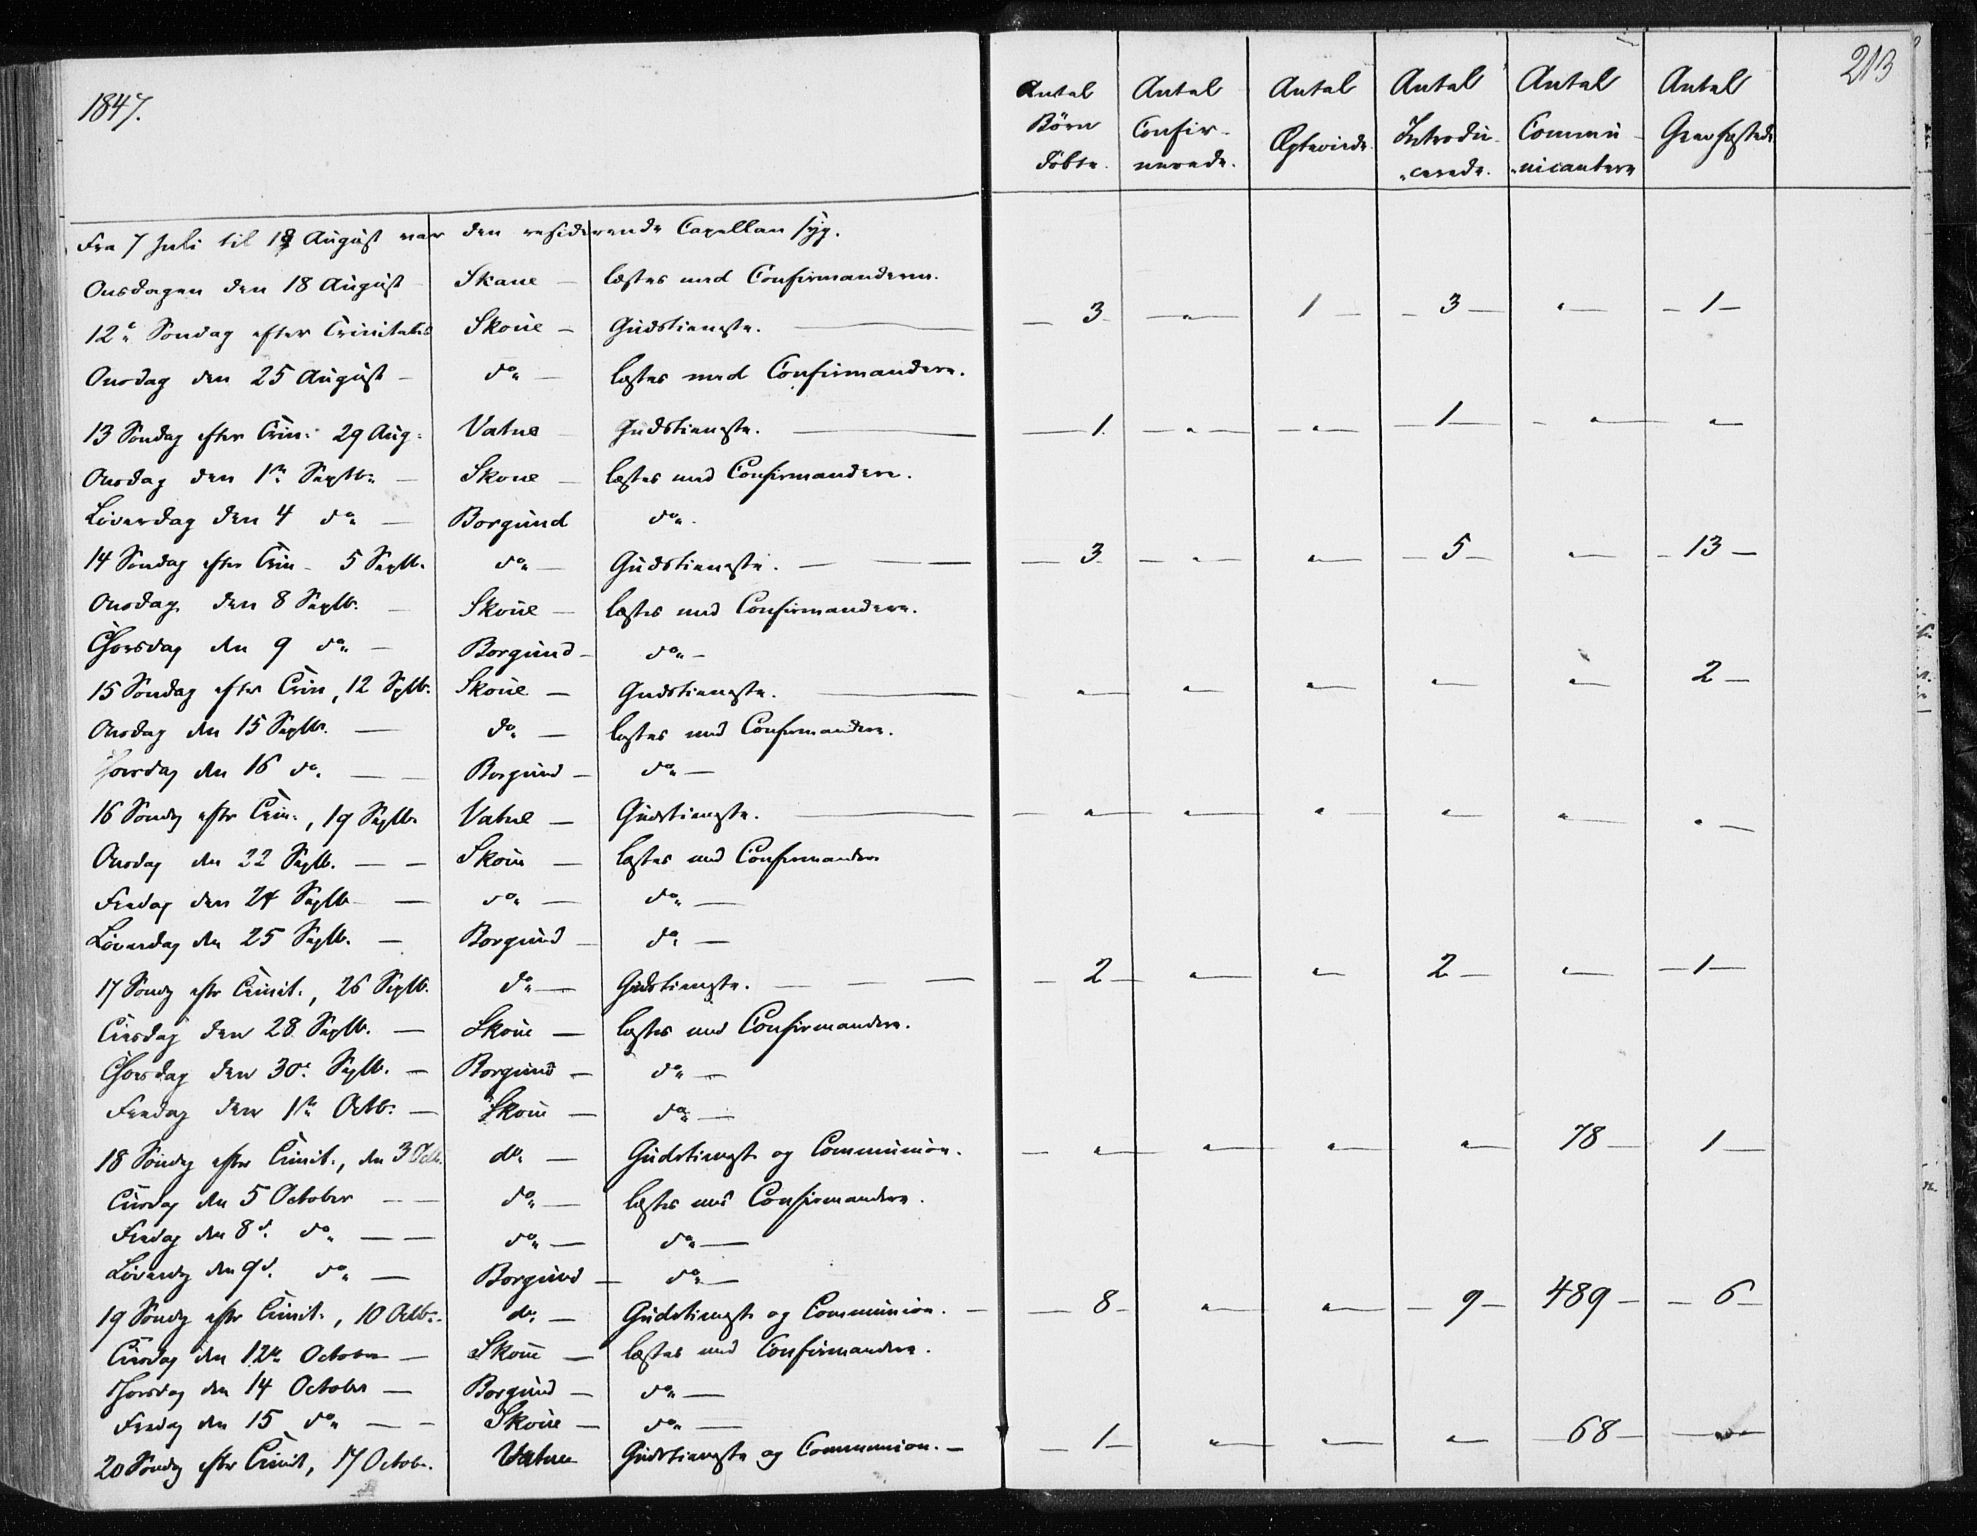 213
1847.
Antal Børn døbte. Antal Confirmerede. Antal Ægteviede. Antal Introducerede. Antal Communicantere Antal Gravfæstede
Fra 7 Juli til 18 August var den residerende Capellan syg.
Onsdagen den 18 August - Skoue - læstes med Confirmanderne.
12te Søndag efter Trinitatis Skoue - Gudstieneste. — 3 — „ — 1 — 3 — „ — 1 —
Onsdag den 25 August - do - læstes med Confirmandere.
13 Søndag efter Trin: 29 Aug: Vatne - Gudstieneste. — 1. — „ — „ — 1 — „ — „ —
Onsdag den 1ste Septbr - Skoue - læstes med Confirmandere.
Löverdag den 4 do - Borgund do.
14 Søndag efter Trin - 5 Septb. do - Gudstieneste. — 3. — „ — „ — 5 — „ — 13 —
Onsdag den 8 Septb. - Skoue - læstes med Confirmandere.
Thorsdag den 9 do - Borgund - do -
15 Søndag efter Trin, 12 Sptb. Skoue - Gudstieneste. — „ — „ — „ — „ — „ — 2 —
Onsdag den 15 Septb. — do - læstes med Confirmandere.
Thorsdag den 16 do. — — Borgund - do —
16 Søndag efter Trin:, 19 Septb. Vatne - Gudstieneste. — „ — „ — „ — „ — „ — „ —
Onsdag den 22 Septb. — — Skoue - læstes med Confirmandere
Fredag den 24 Septb — — do — do —
Löverdag den 25 Septb. — Borgund - do —
17 Søndag efter Trinit., 26 Septb. do — Gudstieneste. — 2 — „ — „ — 2 — „ — 1 —
Tirsdag den 28 Septb. — Skoue — læstes med Confirmandere.
Thorsdag den 30te Septb. — Borgund — do —
Fredag den 1ste Octb: — Skoue — do —
18 Søndag efter Trinit., den 3 Octb. do. — Gudstieneste og Communion. — „ — „ — „ — „ — 78 — 1 —
Tirsdag den 5 October — — do — læstes med Confirmandere.
Fredag den 8d. do — — do — do —
Löverdag den 9d. do — Borgund — do —
19 Søndag efter Trinit., 10 Octbr. do. — Gudstieneste og Communion. — 8 — „ — „ — 9 — 489 — 6 —
Tirsdag den 12te October — Skoue — læstes med Confirmandere.
Thorsdag den 14 October — Borgund — do —
Fredag den 15 do — - Skoue — do —
20 Søndag efter Trinit, 17 Octobr. Vatne Gudstieneste og Communion. — 1 — „ — „ — „ — 68 — „ —